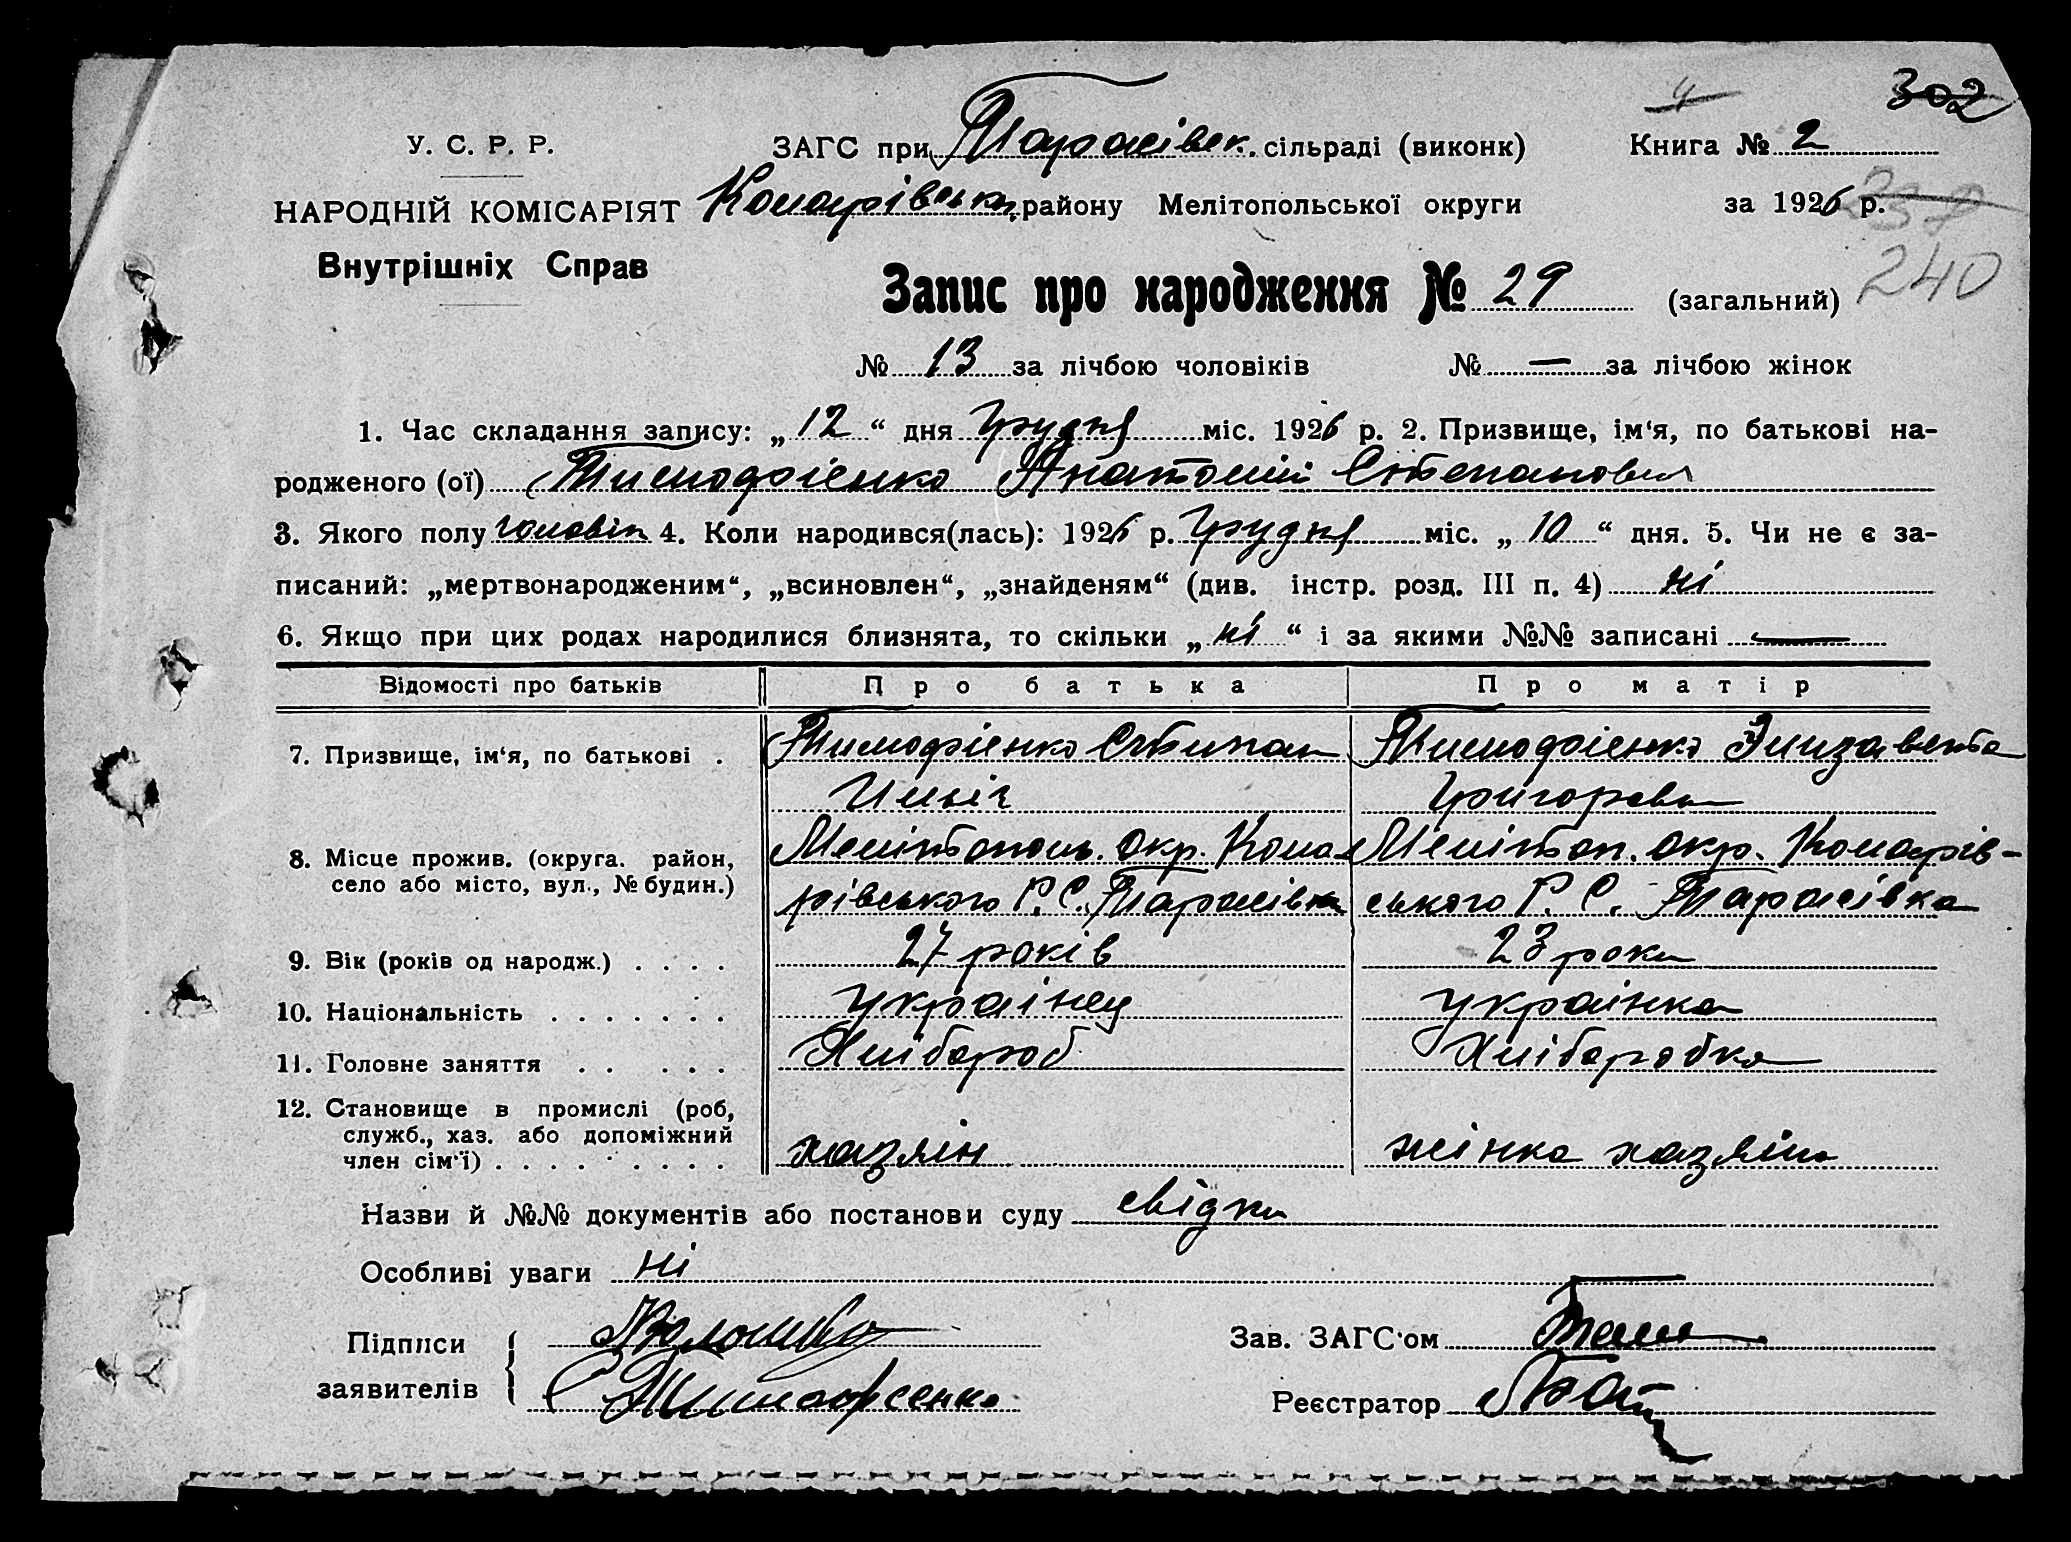 4 302
У. С. Р. Р. ЗАГС при Тарасівск. сільраді (виконк) Книга № 2
НАРОДНІЙ КОМІСАРІЯТ Комарівськ. району Мелітопольської округи за 1926 р. 238
Внутрішніх Справ
240
Запис про народження № 29 (загальний)
№ 13 за лічбою чоловіків № — за лічбою жінок
1. Час складання запису: „12“ дня Грудня міс. 1926 р. 2. Призвище, ім‘я, по батькові на-
родженого (ої) Тимофієнко Анатолій Степанович
3. Якого полу чоловік 4. Коли народився(лась): 1926 р. Грудня міс. „10“ дня. 5. Чи не є за-
писаний: „мертвонародженим“, „всиновлен“, „знайденям“ (див. інстр. розд. III п. 4) ні
6. Якщо при цих родах народилися близнята, то скільки „ні“ і за якими №№ записані —
Відомості про батьків Про батька Про матір
7. Призвище, ім‘я, по батькові . Тимофієнко Степан Тимофієнко Элизавета
Ильіч Григорєвн
8. Місце прожив. (округа. район, село або місто, вул., № будин.) Мелітополь. окр. Кома- Мелітоп. окр. Комарів-
рівського Р. С. Тарасівка ського Р. С. Тарасівка
9. Вік (років од народж.) . . . . 27 років 23 роки
10. Національність . . . . . . . українец українка
11. Головне заняття . . . . . Хлібороб Хліборобка
12. Становище в промислі (роб,
служб., хаз. або допоміжний
член сім‘ї) . . . . . . . . . хазяін жінка хазяіна
Назви й №№ документів або постанови суду свідки
Особливі уваги ні
Підписи Зав. ЗАГС‘ом
заявителів Тимофеенко Реєстратор